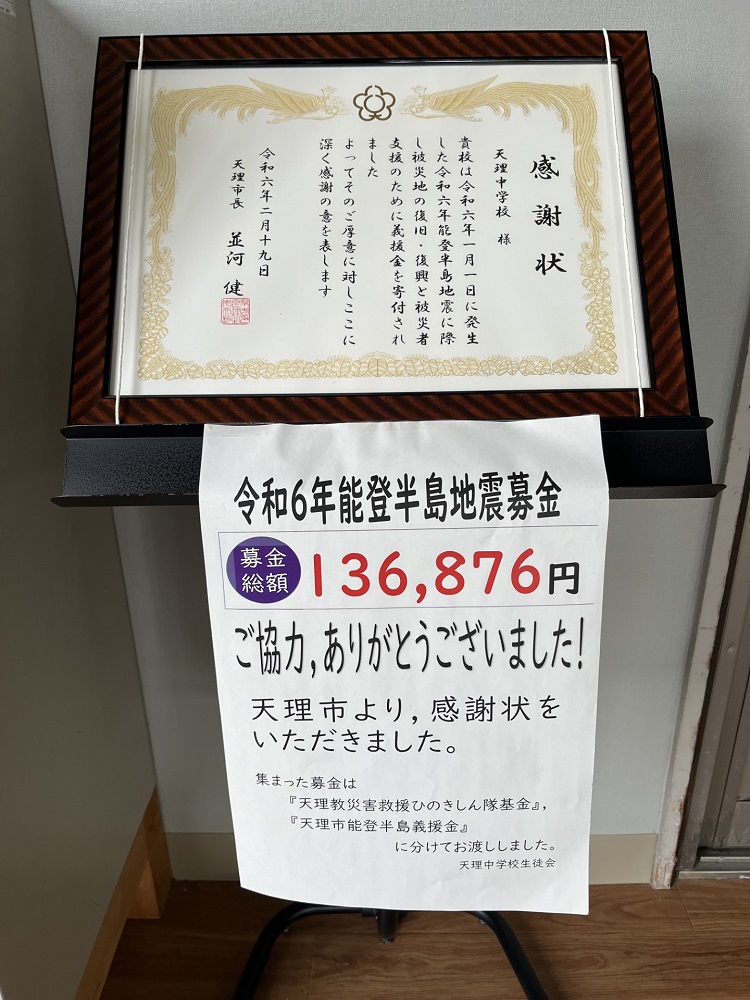 感謝状
天理中学校 様
貴校は令和六年一月一日に発生
した令和六年能登半島地震に際
し被災地の復旧・復興と被災者
支援のために義援金を寄付され
ました
よってそのご厚意に対しここに
深く感謝の意を表します
令和六年二月十九日
天理市長 並河 健
令和6年能登半島地震募金
募金
総額
136,876円
ご協力,ありがとうございました!
天理市より,感謝状を
いただきました。
集まった募金は
『天理教災害救援ひのきしん隊基金』,
『天理市能登半島義援金』
に分けてお渡ししました。
天理中学校生徒会